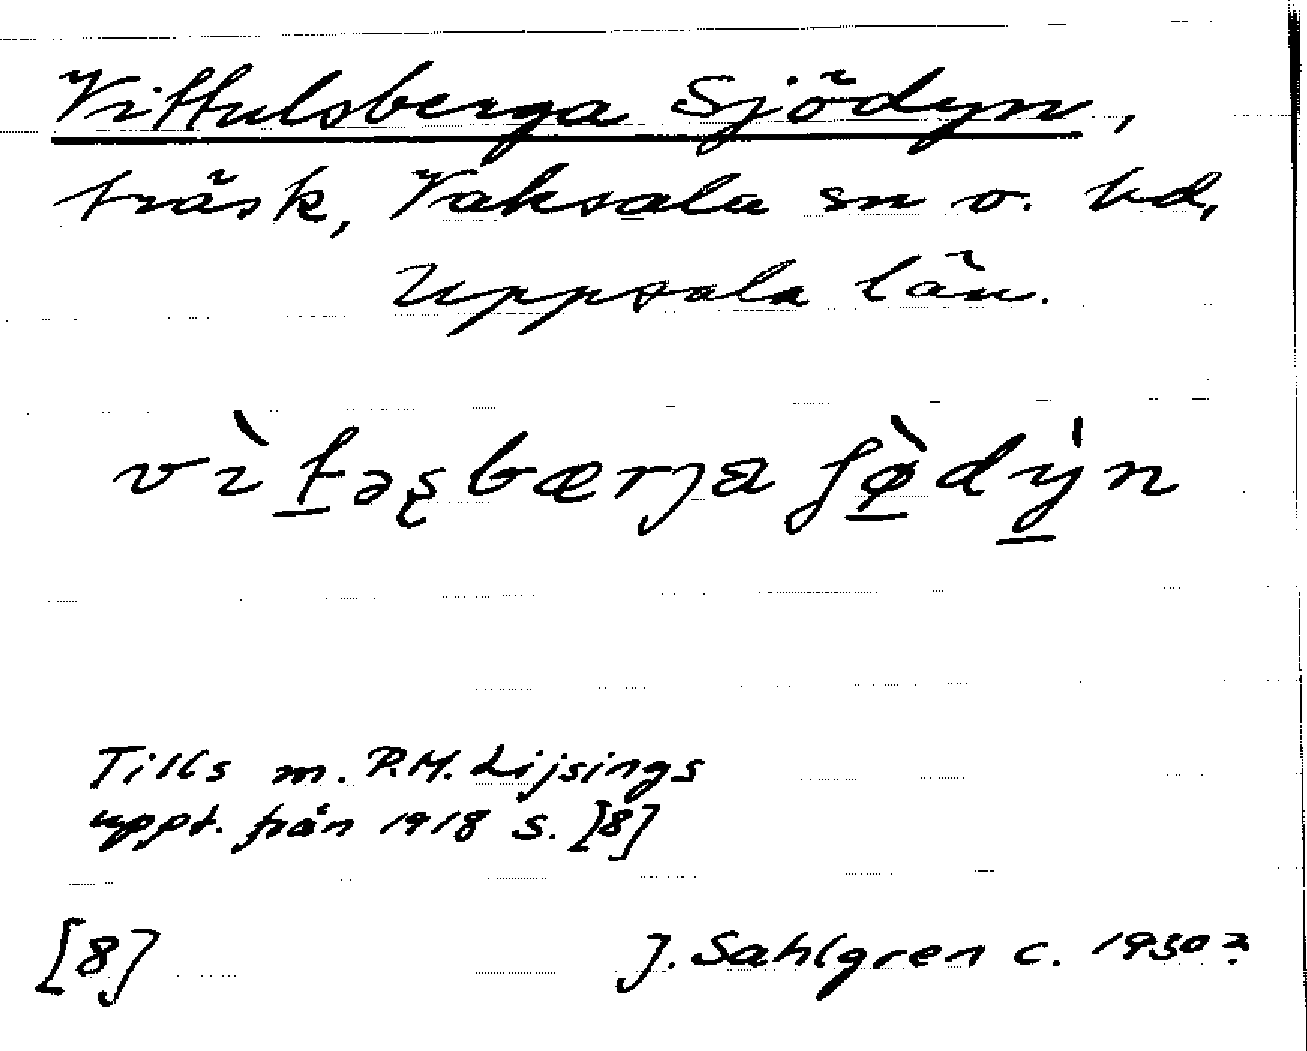 Vittulsberga Sjödyn,
träsk, Vaksala sn o. hd,
Uppsala län.
vìt̠əʂbærjɑ ʃø̠̀dý̠n
Tills m. P.M. Lijsings
uppt. från 1918 s. [8]
[8] J. Sahlgren c. 1930?